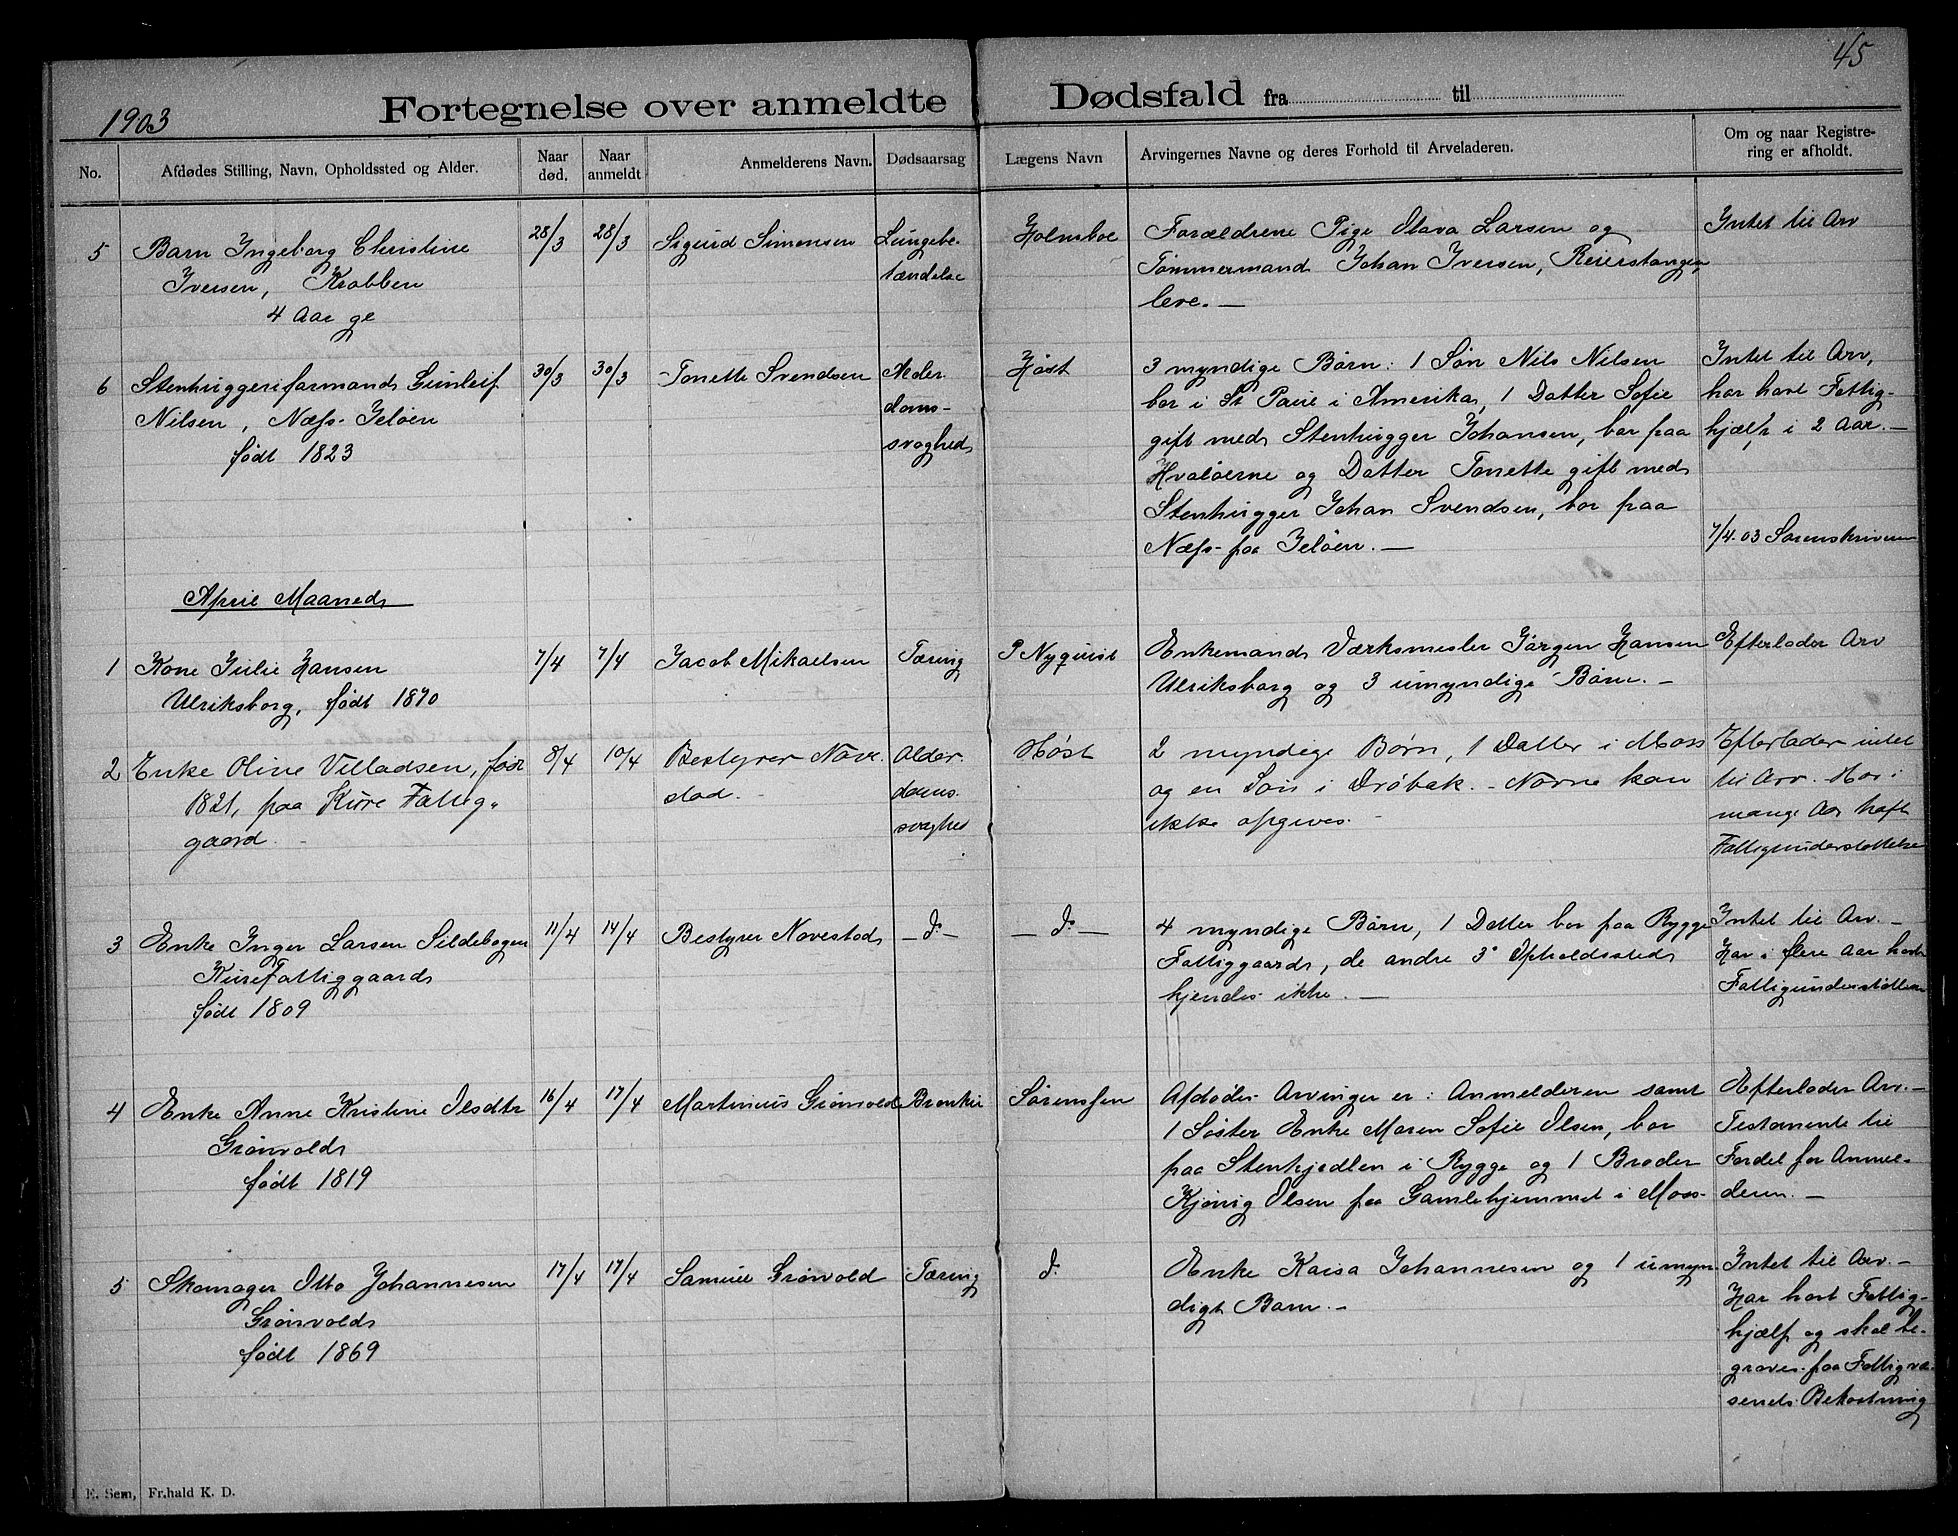 45
1903
Fortegnelse over anmeldte Dødsfald fra til
No.
Afdødes Stilling, Navn, Opholdssted og Alder.
Naar død.
Naar anmeldt
Anmelderens Navn.
Dødsaarsag
Lægens Navn
Arvingernes Navne og deres Forhold til Arveladeren.
Om og naar Registrering er afholdt.
5
Barn Ingeborg Christine
Iversen, Krabben
4 Aar gl
28/3
28/3
Sigurd Simensen
Lungebe-
tændelse
Holmboe
Forældrene Pige Olava Larsen og
Tømmermand Johan Iversen, Reierstangen,
leve. —
Intet til Arv
6
Stenhuggeriformand Gunleif
Nilsen, Næss Jeløen
født 1823
30/3
30/3
Tonette Svendsen
Alder
doms-
svaghed
Høst
3 myndige Børn: 1 Søn Nils Nilsen
bor i St Paul i Amerika, 1 Datter Sofie
gift med Stenhugger Johansen, bor paa
Hvaløerne og Datter Tonette gift med
Stenhugger Johan Svendsen, bor paa
Næss paa Jeløen. —
Intet til Arv,
har havt Fattig-
hjælp i 2 Aar. —
7/4 03 Sorenskriveren
April Maaned
1
Kone Julie Hansen
Ulriksborg, født 1870
7/4
7/4
Jacob Mikaelsen
Tæring
P Nyquist
Enkemand Værksmester Jørgen Hansen
Ulriksborg og 3 umyndige Børn. —
Efterlader Arv
2
Enke Oline Villadsen, født
1821, paa Kure Fattig-
gaard.
8/4
10/4
Bestyrer Nave
stad.
Alder
doms.
svaghed
Høst
2 myndige Børn, 1 Datter i Moss
og en Søn i Drøbak. - Navne kan
ikke opgives.
Efterlader intet
til Arv. Har i
mange Aar haft
Fattigunderstøttelse
3
Enke Inger Larsen Sildebogen
Kure Fattiggaard
født 1809
11/4
14/4
Bestyrer Navestad
— do —
— do —
4 myndige Børn, 1 Datter bor paa Rygge
Fattiggaard, de andre 3s Opholdssted
kjendes ikke. —
Intet til Arv. —
Har i flere Aar havt
Fattigunderstøttelse
4
Enke Anne Kristine Olsdtr
Grønvold
født 1819
16/4
17/4
Martinius Grønvold
Bronkit
Sørenssen
Afdødes Arvinger er: Anmelderen samt
1 Søster Enke Maren Sofie Olsen, bor
paa Stenkjedlen i Rygge og 1 Broder
Kjønig Olsen paa Gamlehjemmet i Moss.
Efterlader Arv. —
Testamente til
Fordel for Anmel-
deren. —
5
Skomager Otto Johannesen
Grønvold
født 1869
17/4
17/4
Samuel Grønvold
Tæring
do
Enke Kaisa Johannesen og 1 umyn
digt Barn. —
Intet til Arv. —
Har havt Fattig-
hjælp og skal be-
graves paa Fattigvæ-
senets Bekostning
E. Sem, Fr.hald K. D.